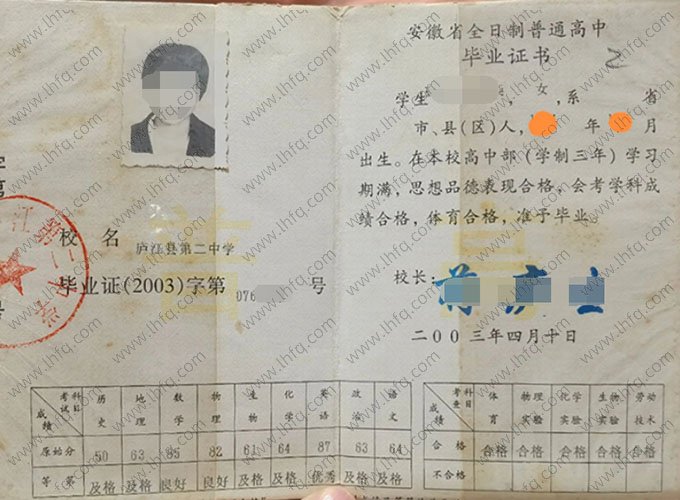 安徽省全日制普通高中
毕业证书
学生 女,系 省
市、县(区)人, 年 月
出生。在本校高中部(学制三年)学习
期满,思想品德表现合格,会考学科成
绩合格,体育合格,准予毕业。
校长:
二00三年四月十日
校 名 庐江县第二中学
毕业证(2003)字第 076 号
考试科目 历史 地理 数学 物理 生物 化学 英语 政治 语文
成绩
原始分 60 63 85 82 61 64 87 63 64
等第 及格 及格 良好 良好 及格 及格 优秀 及格 及格
考查科目 体育 物理实验 化学实验 生物实验 劳动技术
成绩
合格 合格 合格 合格 合格 合格
不合格
www.lhfq.com